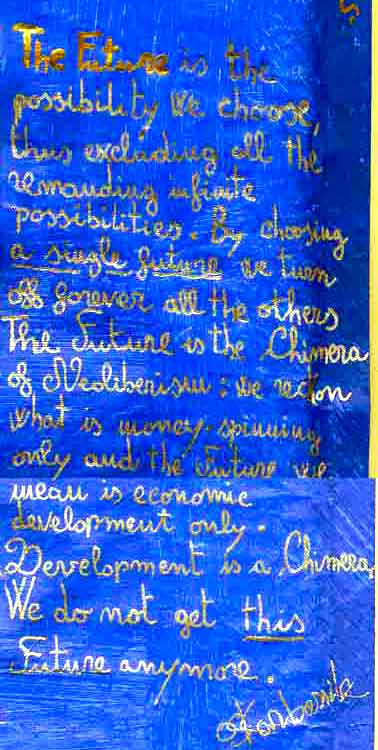 The Future is the
possibility we choose,
thus excluding all the
remanding infinite
possibilities. By choosing
a single future we turn
off forever all the others
The Future is the Chimera
of Neoliberism: we reckon
what is money-spinning
only and the Future we
mean is economic
development only.
Development is a Chimera,
We do not get this
Future anymore.